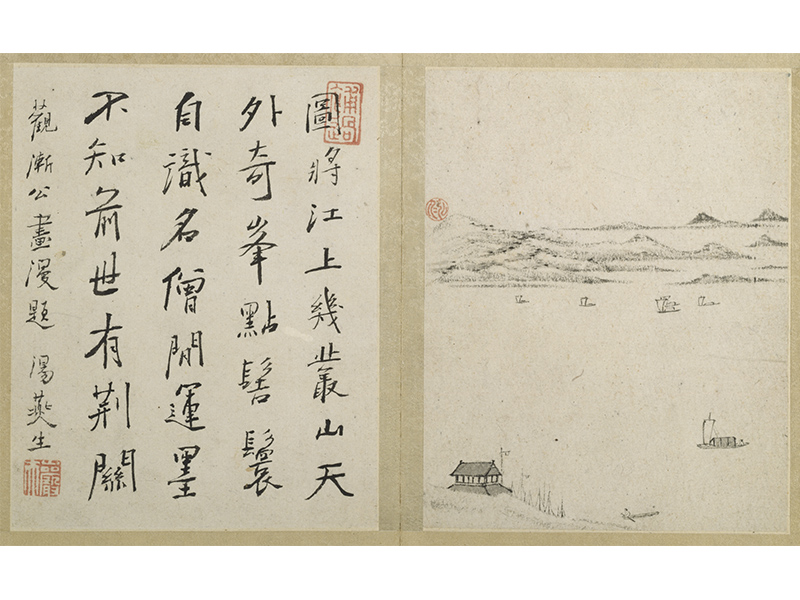 圖將江上幾叢山天
外奇峯點髻鬟
自識名僧閒運墨
不知前世有荊關
觀漸公畫漫題 湯燕生